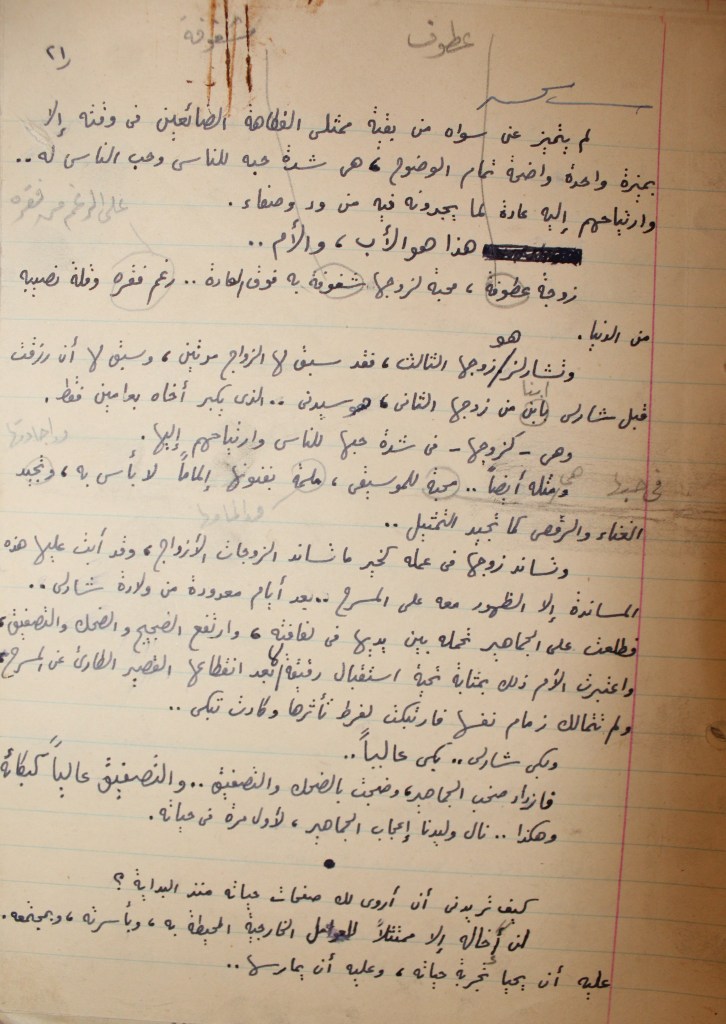 عطوف شغوفة
٢١
لم يتميز عن سواه من بقية ممثلى الفكاهة الضائعين فى وقته إلا
بميزة واحدة واضحة تمام الوضوح، هى شدة حبه للناس وحب الناس له..
وارتياحهم إليه عادة لما يجدونه فيه من ود وصفاء.
على الرغم من فقره
هذا هو الأب، والأم..
زوجة عطوفة، محبة لزوجها شغوفة به فوق العادة.. رغم فقره وقلة نصيبه
من الدنيا.
هو
وتشارلز زوجها الثالث، فقد سبق لها الزواج مرتين، وسبق لها أن رزقت
ابنا
قبل شارلى بابن من زوجها الثانى، هو سيدنى.. الذى يكبر أخاه بعامين فقط.
وهى - كزوجها - فى شدة حبها للناس وارتياحهم إليها.
وإجادتها
فى حبها
هى
ومثله أيضاً.. محبة للموسيقى، ملمة بفنونها إلماماً لا بأس به، وتجيد
وإلمامها
الغناء والرقص كما تجيد التمثيل..
وتساند زوجها فى عمله كخير ما تساند الزوجات الأزواج، وقد أبت عليها هذه
المساندة إلا الظهور معه على المسرح.. بعد أيام معدودة من ولادة شارلى..
فطلعت على الجماهير تحمله بين يديها فى لفافته، وارتفع الضجيج والضحك والتصفيق،
واعتبرت الأم ذلك بمثابة تحية استقبال رقيقة لها بعد انقطاعها القصير الطارئ عن المسرح،
ولم تتمالك زمام نفسها فارتبكت لفرط تأثرها وكادت تبكى..
وبكى شارلى.. بكى عالياً..
فازداد صخب الجماهير، وضجت بالضحك والتصفيق.. والتصفيق عالياً كبكائه
وهكذا.. نال وليدنا إعجاب الجماهير، لأول مرة فى حياته.
كيف تريدنى أن أروى لك صفحات حياته منذ البداية؟
لن إخاله إلا ممتثلاً للعوامل الخارجية المحيطة به، وبأسرته، وبمجتمعه.
عليه أن يحيا تجربة حياته، وعليه أن يمارسها..